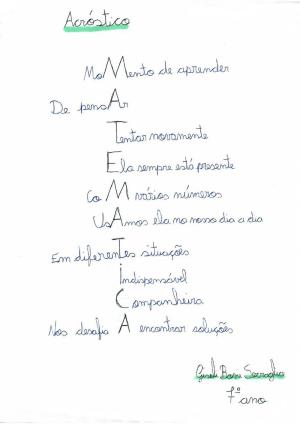 Acróstico
MoMento de aprender
De pensAr
Tentar novamente
Ela sempre está presente
CoM vários números
UsAmos ela no nosso dia a dia
Em diferenTes situações
Indispensável
Companheira
Nos desafia A encontrar soluções
7º ano